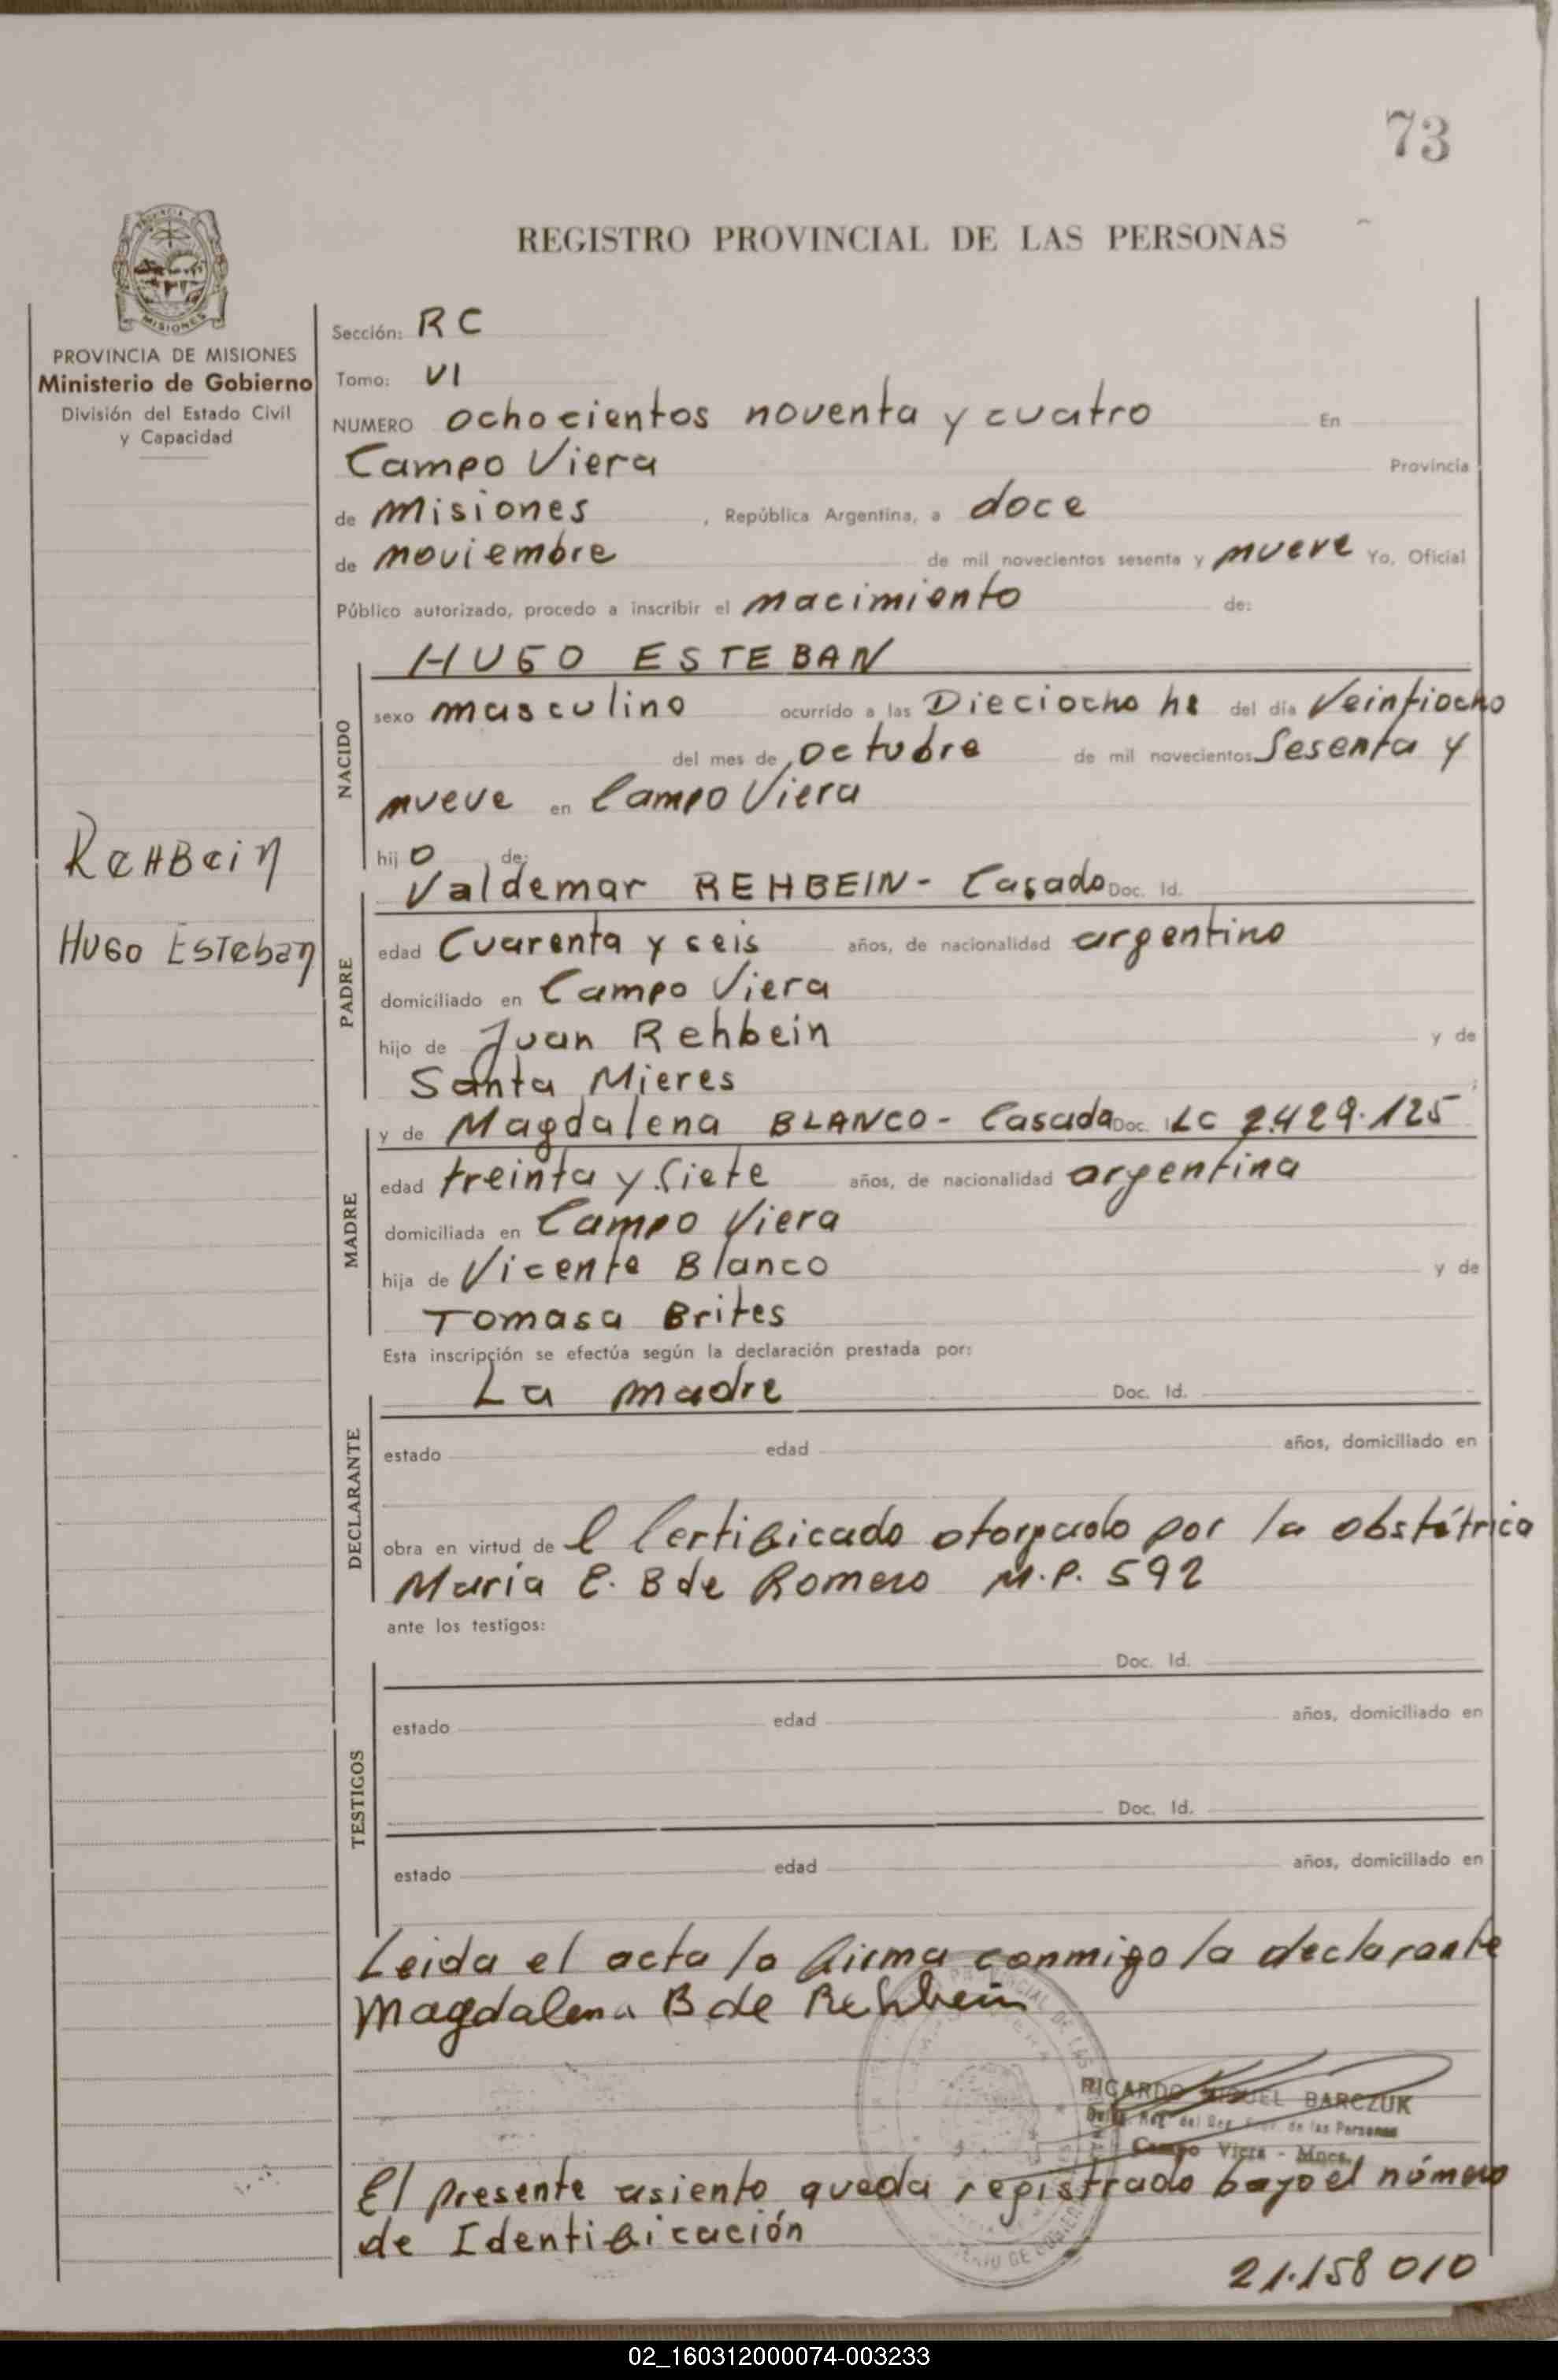 73
REGISTRO PROVINCIAL DE LAS PERSONAS
MISIONES
PROVINCIA DE MISIONES
Ministerio de Gobierno
División del Estado Civil
y Capacidad
Rehbein
Hugo Esteban
Sección: RC
Tomo: VI
NUMERO ochocientos noventa y cuatro En
Campo Viera Provincia
de Misiones, República Argentina, a doce
de noviembre de mil novecientos sesenta y nueve Yo, Oficial
Público autorizado, procedo a inscribir el nacimiento de:
NACIDO
HUGO ESTEBAN
sexo masculino ocurrido a las Dieciocho hs del día Veintiocho
del mes de octubre de mil novecientos Sesenta y
nueve en Campo Viera
hijo de:
PADRE
Valdemar REHBEIN - Casado Doc. Id.
edad Cuarenta y seis años, de nacionalidad argentino
domiciliado en Campo Viera
hijo de Juan Rehbein y de
Santa Mieres
MADRE
y de Magdalena BLANCO - Casada Doc. LC 2.429.125
edad treinta y siete años, de nacionalidad argentina
domiciliada en Campo Viera
hija de Vicente Blanco y de
Tomasa Brites
Esta inscripción se efectúa según la declaración prestada por:
DECLARANTE
La madre Doc. Id.
estado edad años, domiciliado en
obra en virtud de l Certificado otorgado por la obstétrica
María E. B de Romero M.P. 592
ante los testigos:
TESTIGOS
Doc. Id.
estado edad años, domiciliado en
Doc. Id.
estado edad años, domiciliado en
Leida el acta la firma conmigo la declarante
Magdalena B de Rehbein
RICARDO MIGUEL BARCZUK
de las Personas
Campo Viera - Mnes.
El presente asiento queda registrado bajo el número
de Identificación
21.158010
02_160312000074-003233